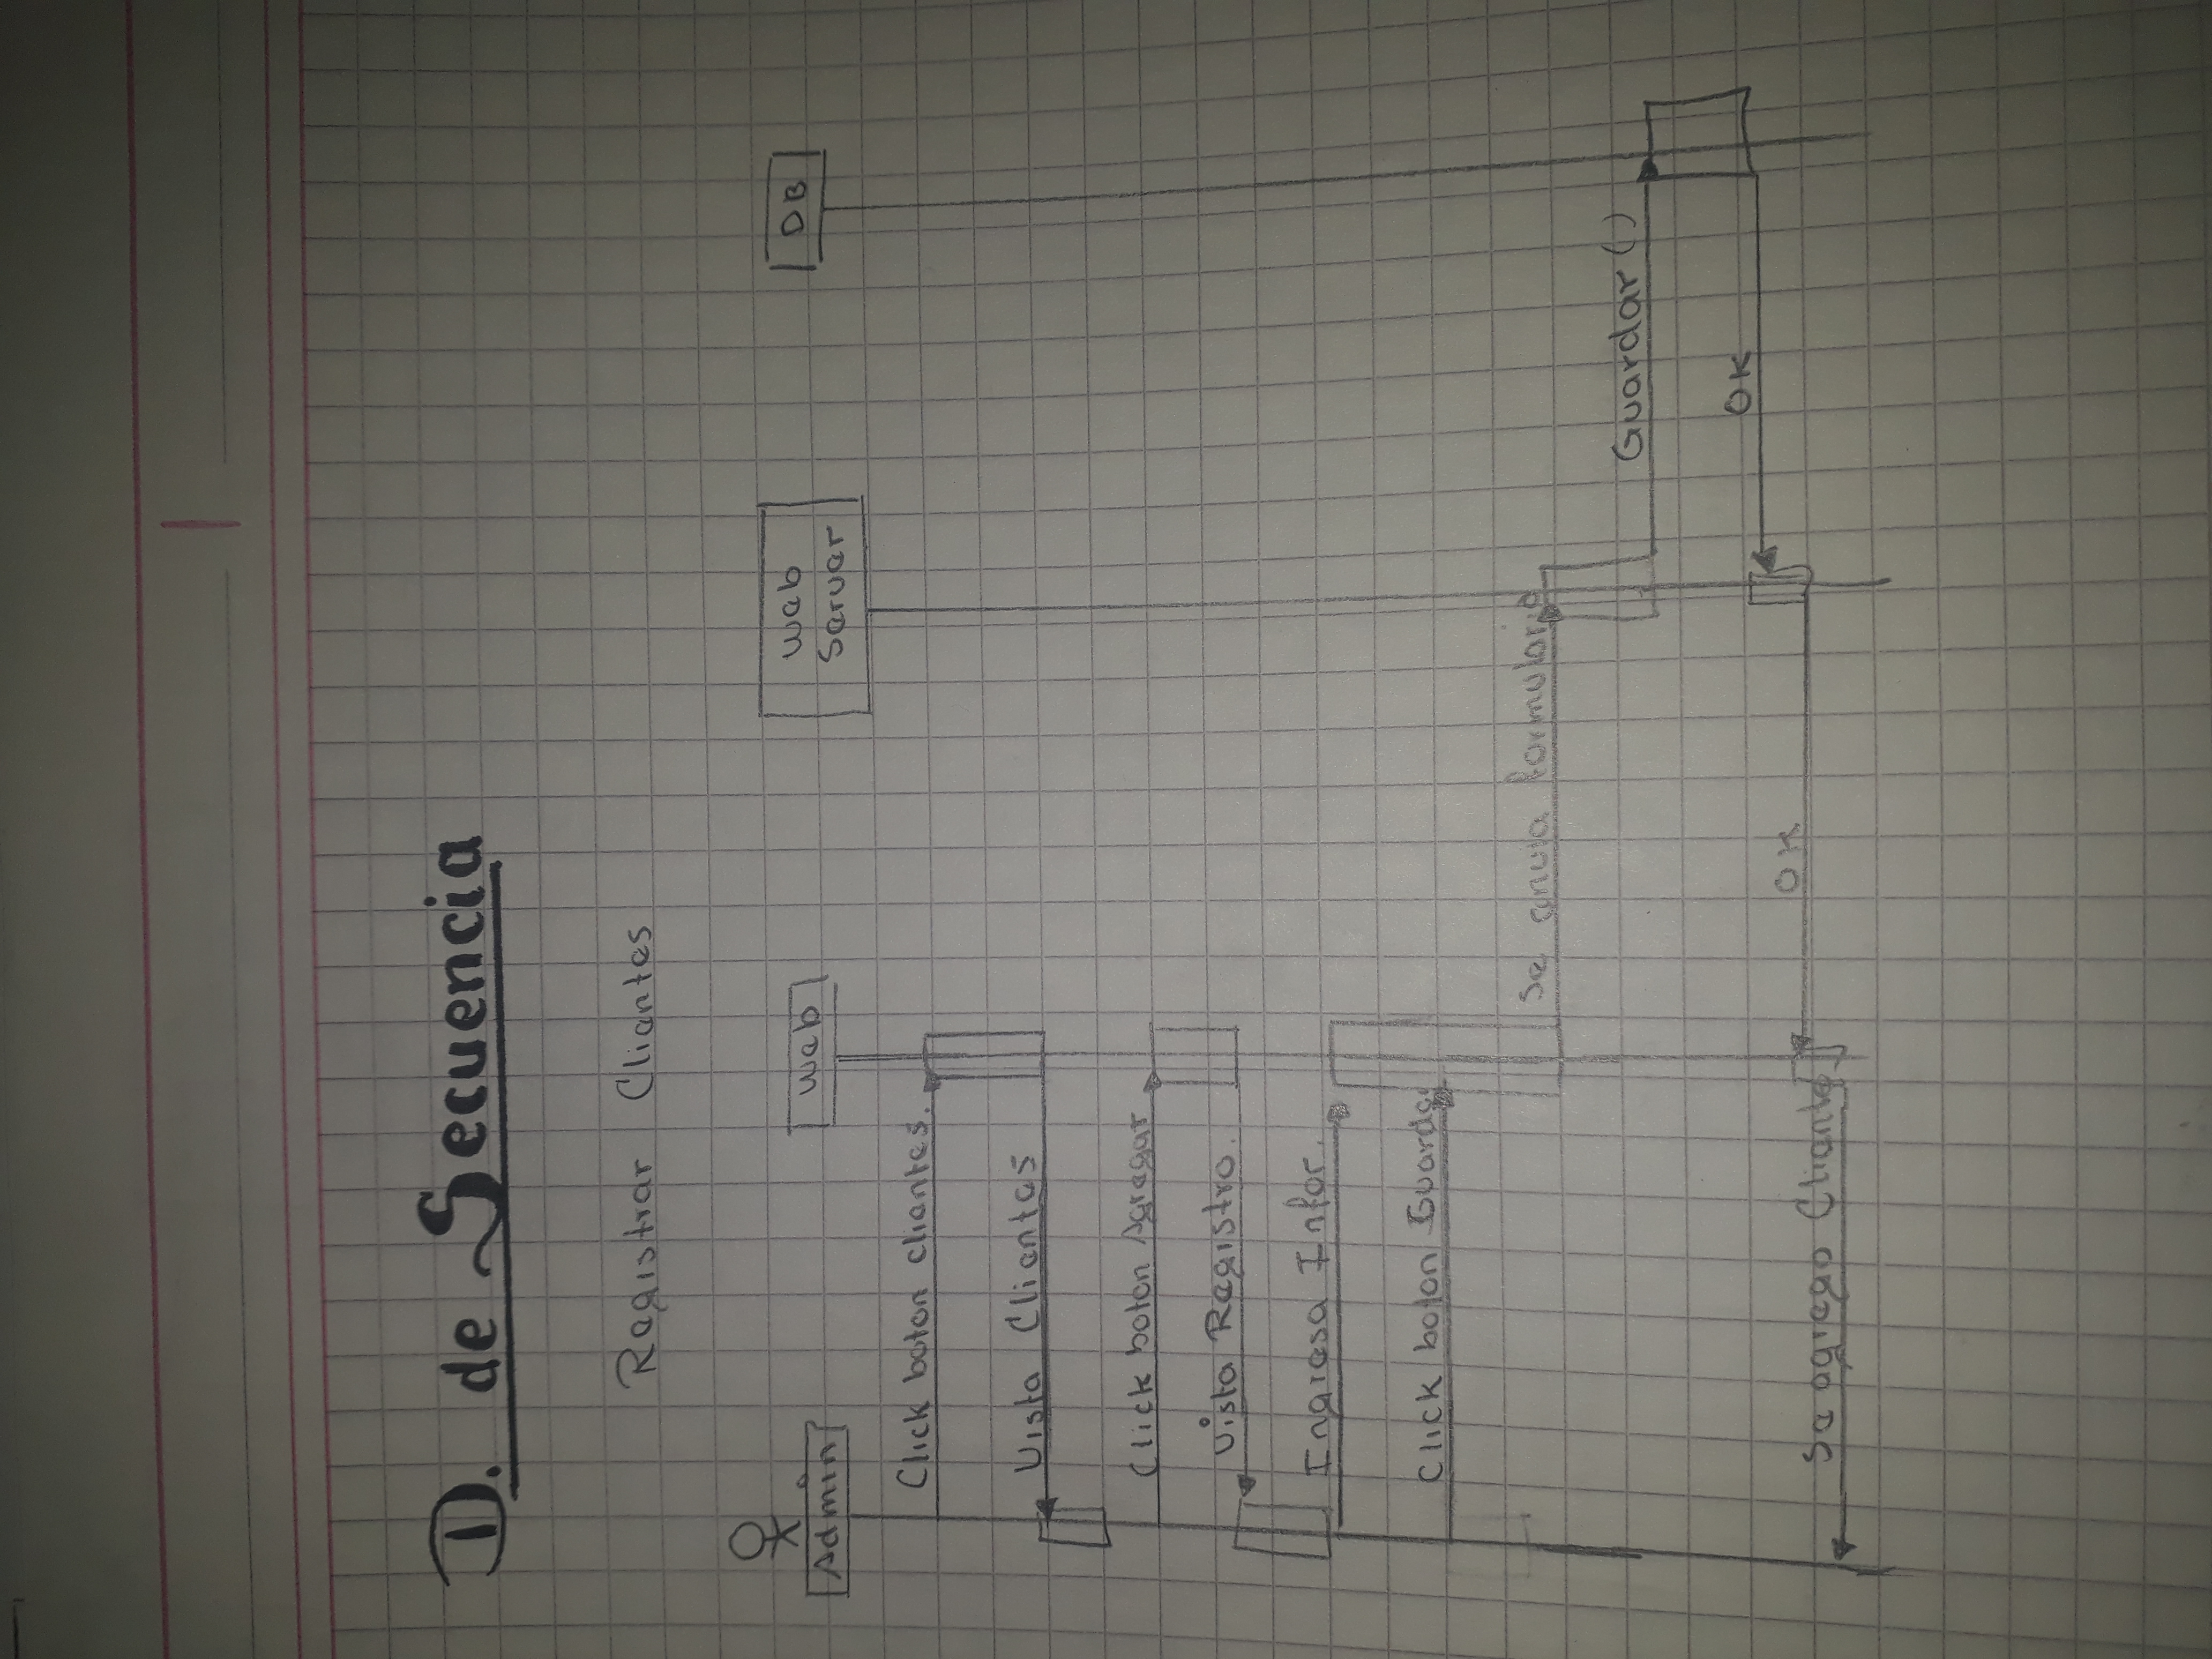 D. de Secuencia
Registrar Clientes
Admin
Web
Web
Server
DB
Click boton clientes.
Vista Clientes
Click boton Agregar
Vista Registro.
Ingresa Infor.
Click boton Guardar
Se envia formulario
Guardar ()
OK
OK
Se agrego Cliente